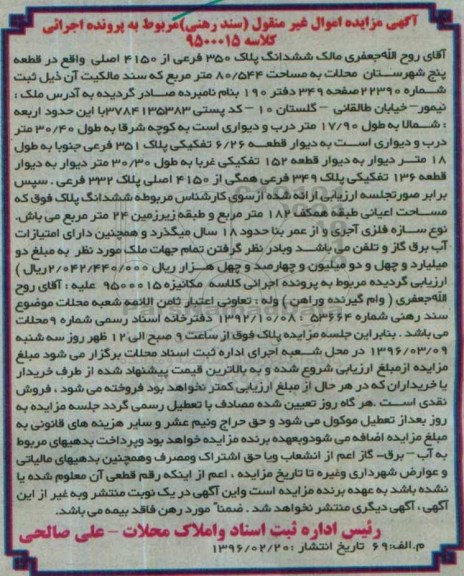 آگهی مزایده اموال غیر منقول (سند رهنی)مربوط به پرونده اجرائی
کلاسه ۹۵۰۰۰۱۵
آقای روح الله‌جعفری مالک ششدانگ پلاک ۳۵۰ فرعی از ۴۱۵۰ اصلی واقع در قطعه
پنج شهرستان محلات به مساحت ۸۰/۵۴۴ متر مربع که سند مالکیت آن ذیل ثبت
شماره ۲۲۳۹۰ صفحه ۳۴۹ دفتر ۱۹۰ بنام نامبرده صادر گردیده به آدرس ملک :
نیمور– خیابان طالقانی – گلستان ۱۰ – کد پستی ۳۷۸۴۱۳۵۳۸۳با این حدود اربعه
: شمالا به طول ۱۷/۹۰ متر درب و دیواری است به کوچه شرقا به طول ۳۰/۴۰ متر
درب و دیواری است به دیوار قطعه ۶/۲۶ تفکیکی پلاک ۳۵۱ فرعی جنوبا به طول
۱۸ متر دیوار به دیوار قطعه ۱۵۲ تفکیکی غربا به طول ۳۰/۳۰ متر دیوار به دیوار
قطعه ۱۳۶ تفکیکی پلاک ۳۴۹ فرعی همگی از ۴۱۵۰ اصلی پلاک ۳۳۲ فرعی . سپس
برابر صورتجلسه ارزیابی ارائه شده ازسوی کارشناس مربوطه ششدانگ پلاک فوق که
مساحت اعیانی طبقه همکف ۱۸۲ متر مربع و طبقه زیرزمین ۲۴ متر مربع می باش.
نوع سازه فلزی آجری و از عمر بنا حدود ۱۸ سال میگذرد و همچنین دارای امتیازات
آب برق گاز و تلفن می باشد وبادر نظر گرفتن تمام جهات ملک مورد نظر به مبلغ دو
میلیارد و چهل و دو میلیون و چهارصد و چهل هزار ریال ۲/۰۴۲/۴۴۰/۰۰۰ریال )
ارزیابی گردیده مربوط به پرونده اجرائی کلاسه مکانیزه ۹۵۰۰۰۱۵ علیه : آقای روح
الله‌جعفری ( وام گیرنده وراهن ) وله : تعاونی اعتبار ثامن الائمه شعبه محلات موضوع
سند رهنی شماره ۵۳۶۶۴ : ۱۳۹۲/۱۰/۰۸ دفترخانه اسناد رسمی شماره ۹محلات
می باشد . بنابراین جلسه مزایده پلاک فوق از ساعت ۹ صبح الی ۱۲ ظهر روز سه شنبه
۱۳۹۶/۰۳/۰۹ در محل شعبه اجرای اداره ثبت اسناد محلات برگزار می شود مبلغ
مزایده ازمبلغ ارزیابی شروع شده و به بالاترین قیمت پیشنهاد شده از طرف خریدار
یا خریداران که در هر حال از مبلغ ارزیابی کمتر نخواهد بود فروخته می شود ، فروش
نقدی است .هر گاه روز تعیین شده مصادف با تعطیل رسمی گردد جلسه مزایده به
روز بعداز تعطیل موکول می شود و حق حراج ونیم عشر و سایر هزینه های قانونی به
مبلغ مزایده اضافه می شودوبعهده برنده مزایده خواهد بود وپرداخت بدهیهای مربوط
به آب – برق– گاز اعم از انشعاب ویا حق اشتراک ومصرف وهمچنین بدهیهای مالیاتی
و عوارض شهرداری وغیره تا تاریخ مزایده ، اعم از اینکه رقم قطعی آن معلوم شده یا
نشده باشد به عهده برنده مزایده است واین آگهی در یک نوبت منتشر وبه غیر از این
آگهی ، آگهی دیگری منتشر نخواهد شد . ضمنا" مورد رهن فاقد بیمه می باشد.
رئیس اداره ثبت اسناد واملاک محلات – علی صالحی
م.الف:۶۹ تاریخ انتشار :۱۳۹۶/۰۲/۲۰